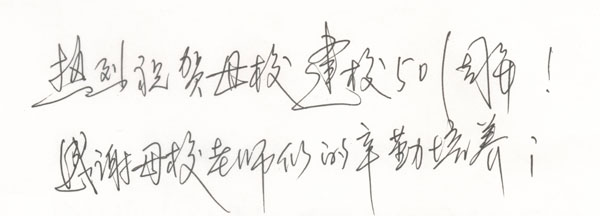 热烈祝贺母校建校50周年！
感谢母校老师们的辛勤培养；